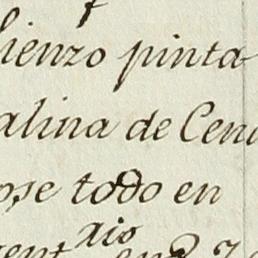 lienzo pinta
alina de Cen
ose todo en